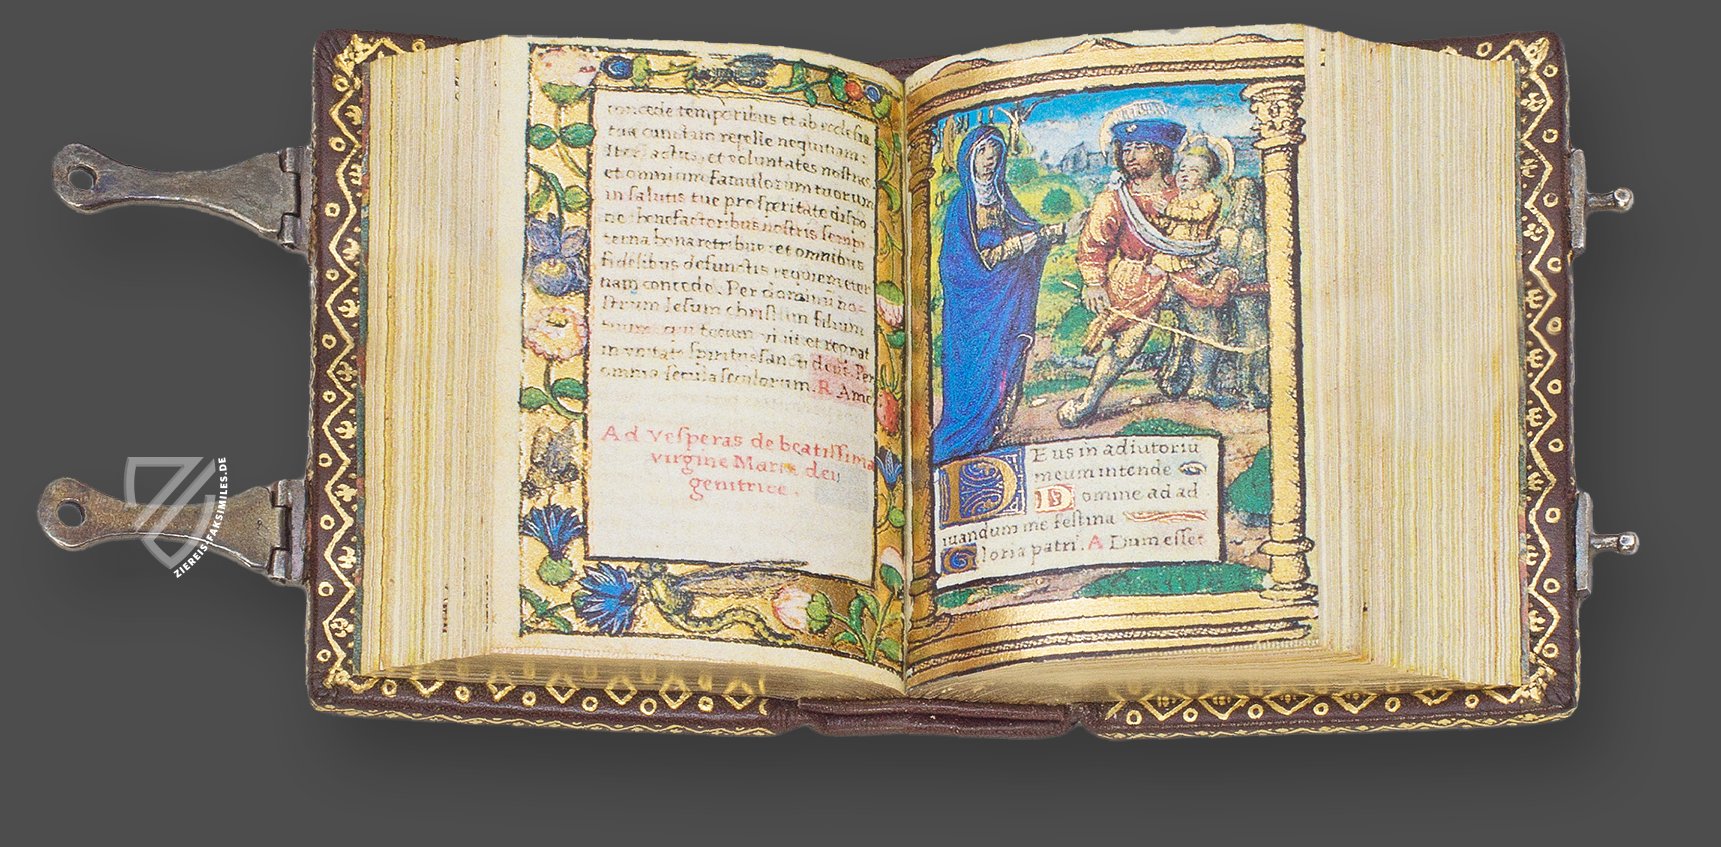 concede temporibus et ab ecclesia
tua cunctam repelle nequitiam:
Iter, actus, et voluntates nostras,
et omnium famulorum tuorum
in salutis tue prosperitate dispo
ne: benefactoribus nostris sempi
terna bona retribue: et omnibus
fidelibus defunctis requiem eter
nam concede. Per dominū nos
strum Iesum christum filium
tuum: qui tecum vivit et regnat
in vnitate spiritus sancti deus. Per
omnia secula seculorum. R Ame
Ad vesperas de beatissima
virgine Maria dei
genitrice.
DEus in adiutoriū
meum intende
Domine ad ad
iuandum me festina
Gloria patri. A Dum esset
ZIEREIS-FAKSIMILES.DE